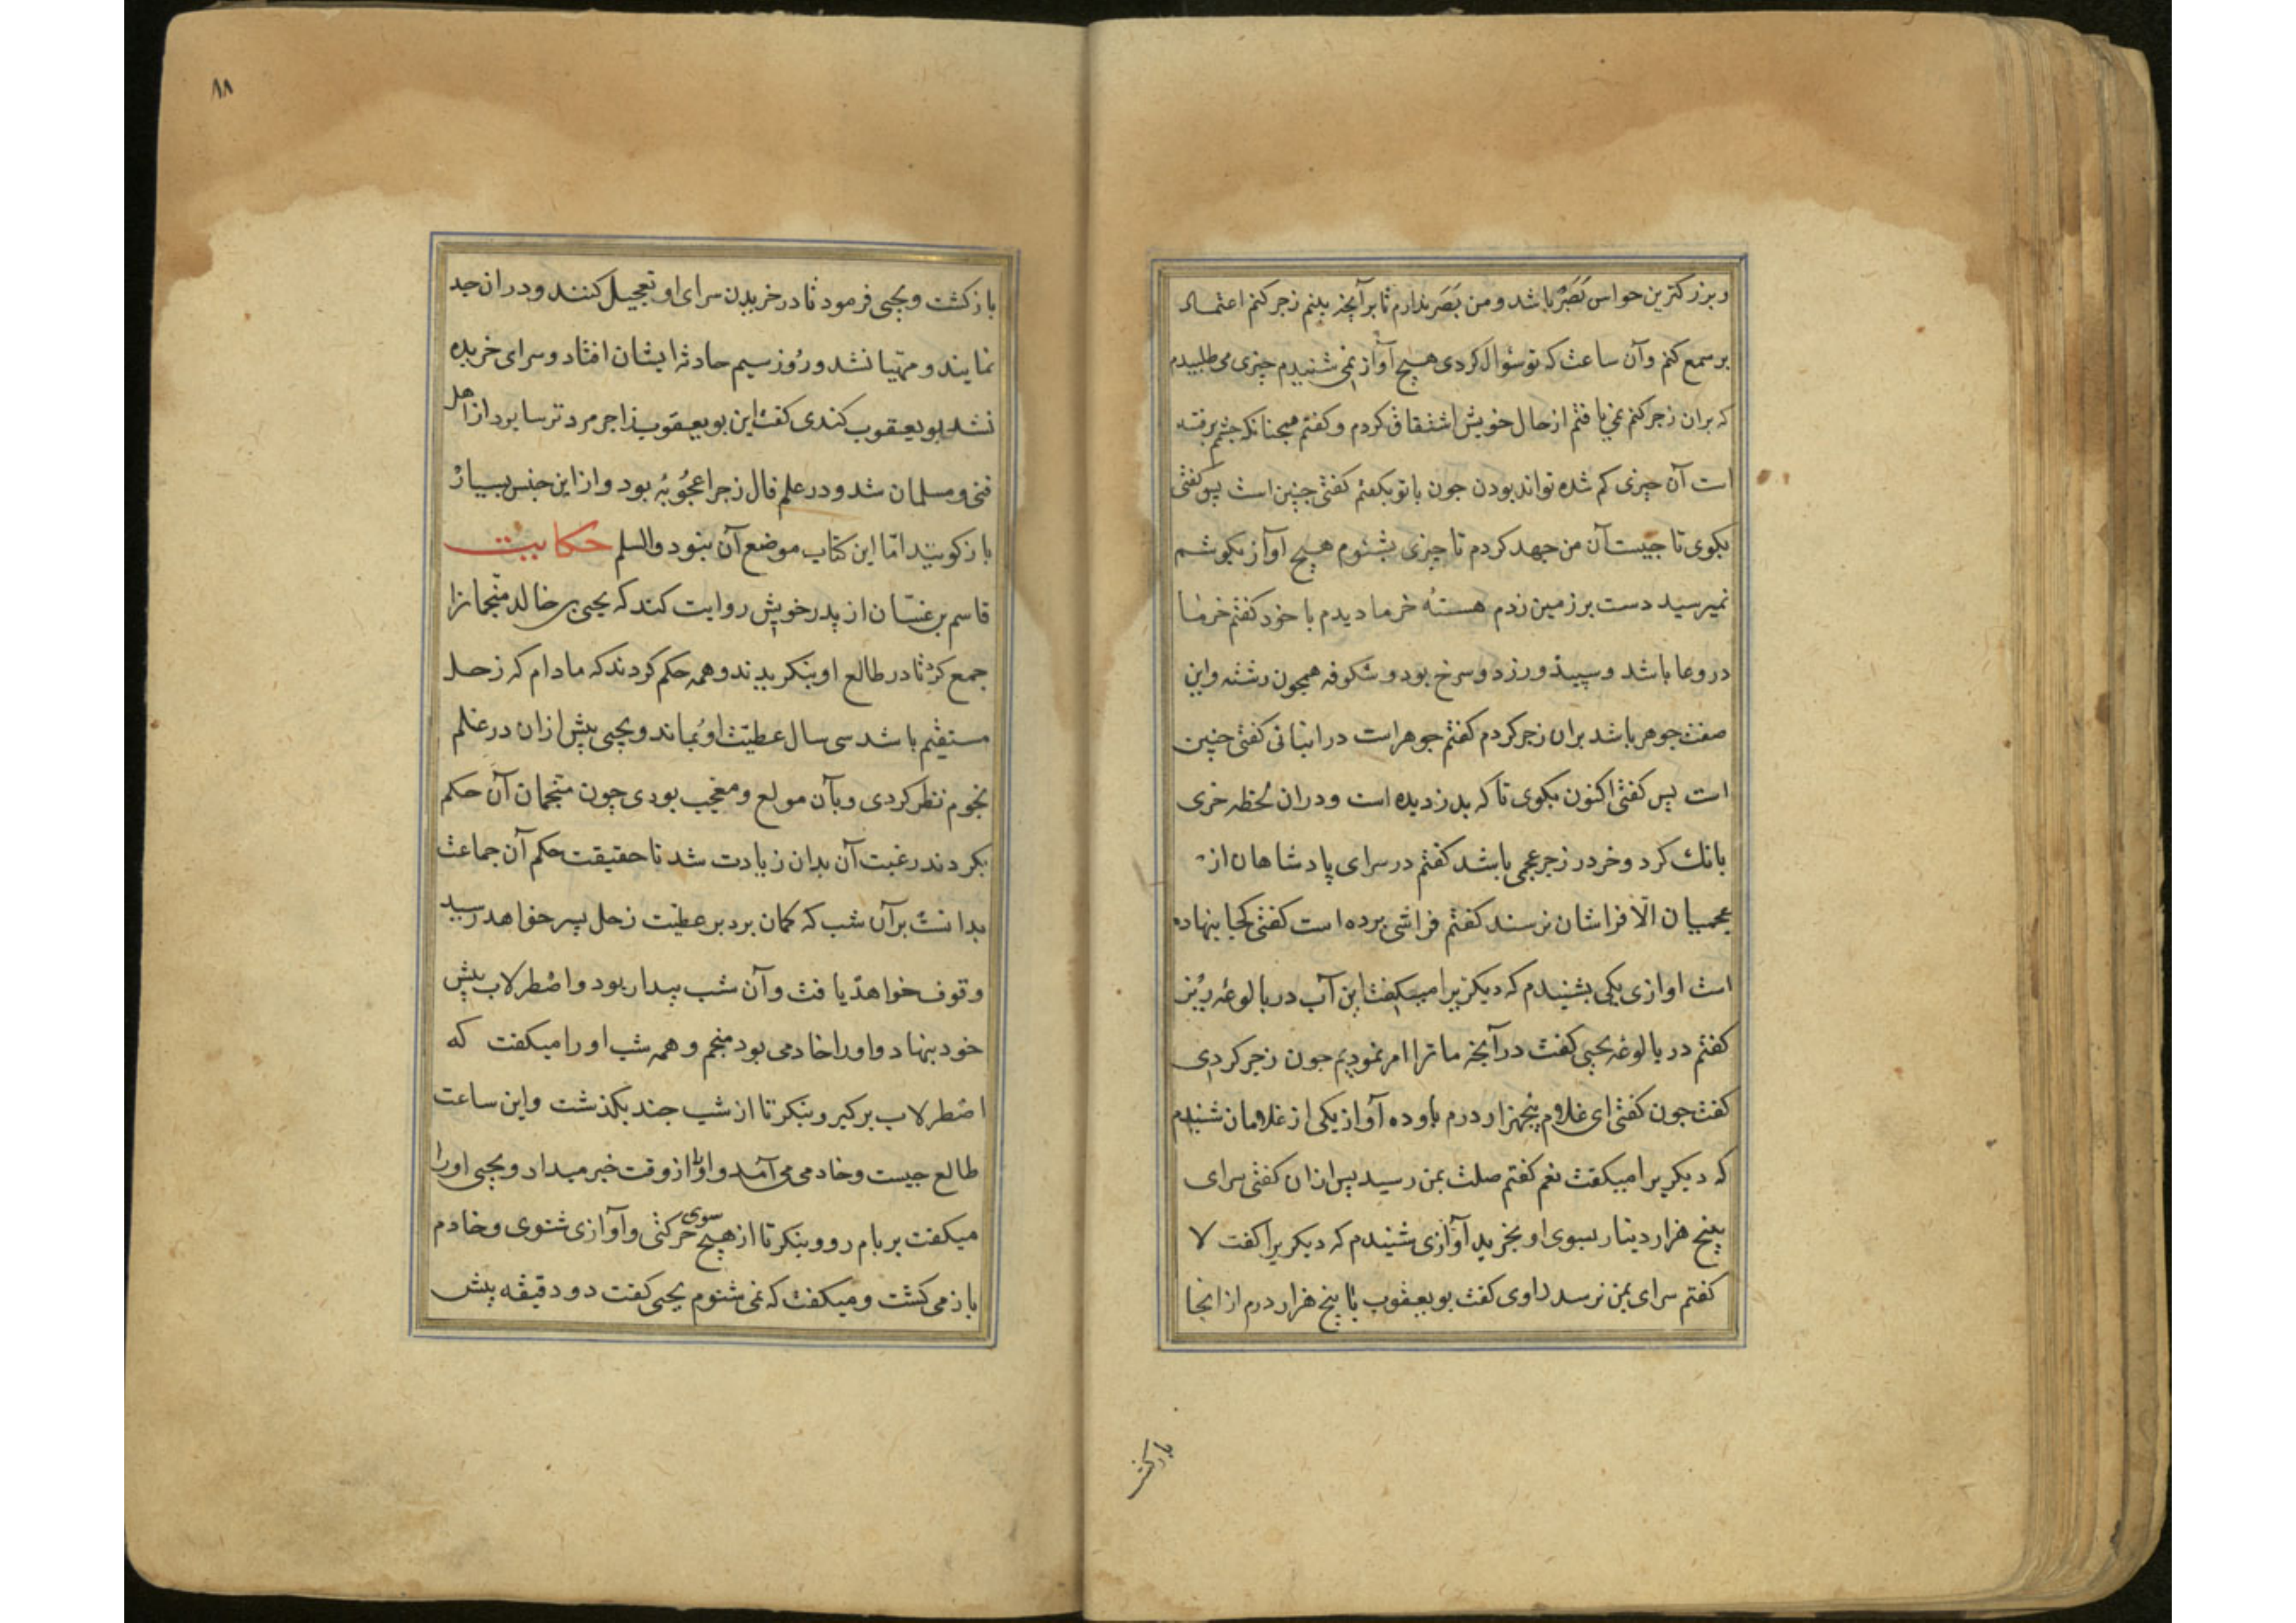 وبزرکترین حواس بَصَر باشد ومن بَصَر ندارم تا برآنچه بینم زجر کنم اعتماد
بر سمع کنم وآن ساعت که تو سؤال کردی هیچ آواز نمی شنیدم چیزی می طلبیدم
که بران زجر کنم نمی یافتم از حال خویش اشتقاق کردم وکفتم همچنانکه چشم برفته
است آن چیزی کم شده تواند بودن جون با تو بکفتم کفتی جنین است پس کفتی
بکوی تا جیست آن من جهد کردم تا چیزی بشنوم هیچ آواز بکوشم
نمیرسید دست بر زمین زدم هستهٔ خرما دیدم با خود کفتم خرما
در وعا باشد وسپیذ وزرد وسرخ بود وشکوفه همچون رشته واین
صفت جوهر باشد بران زجر کردم کفتم جوهر است در انبانی کفتی چنین
است پس کفتی اکنون بکوی تا که بدزدیده است ودران لحظه خری
بانک کرد وخر در زجر عجمی باشد کفتم در سرای پادشاهان از
عجمیان الّا فراشان نرسند کفتم فراشی برده است کفتی کجا بنهاده
است آوازی یکی بشنیدم که دیکریرا میکفت این آب در بالوعه ریز
کفتم در بالوعه یحیی کفت درآنچه ما ترا امر نمودیم جون زجر کردی
کفت جون کفتی ای غلام پنجهزار درم باوده آواز یکی از غلامان شنیدم
که دیکریرا میکفت نعم کفتم صلت بمن رسید پس ازان کفتی سرای
پنج هزار دینار بسوی او بخرید آوازی شنیدم که دیکریرا کفت لا
کفتم سرای بمن نرسد راوی کفت بو یعقوب با پنج هزار درم از انجا
بازکشت
٨٨
بازکشت ویحیی فرمود تا در خریدن سرای او تعجیل کنند ودران جد
نمایند ومهیّا نشد وروز سیم حادثه ایشان افتاد وسرای خریده
نشد بو یعقوب کندی کفت این بو یعقوب زاجر مرد ترسا بود از اهل
فنی ومسلمان شد ودر علم فال زجر اعجُوبُه بود واز این جنس بسیار
بازکویند امّا این کتاب موضع آن نبود والسلم حکایت
قاسم بن غسّان از پدر خویش روایت کند که یحیی بن خالد منجمانرا
جمع کرد تا در طالع او بنکریدند وهمه حکم کردند که مادام که زحل
مستقیم باشد سی سال عطیّت او بماند ویحیی پیش ازان در علم
نجوم نظر کردی وبآن مولع ومعجب بودی چون منجمان آن حکم
بکردند رغبت آن بدان زیادت شد تا حقیقت حکم آن جماعت
بدانست برآن شب که کمان برد بر عطیّت زحل پسر خواهد رسید
وقوف خواهد یافت وآن شب بیدار بود واصْطرلاب پیش
خود بنهاد واورا خادمی بود منجم وهمه شب اورا میکفت که
اصْطرلاب برکیر وبنکر تا از شب جند بکذشت واین ساعت
طالع جیست وخادمی می آمد واورا از وقت خبر میداد ویحیی اورا
میکفت بر بام رو وبنکر تا از هیچ سوی حرکتی وآوازی شنوی وخادم
باز می کشت ومیکفت که نمی شنوم یحیی کفت دو دقیقه پیش